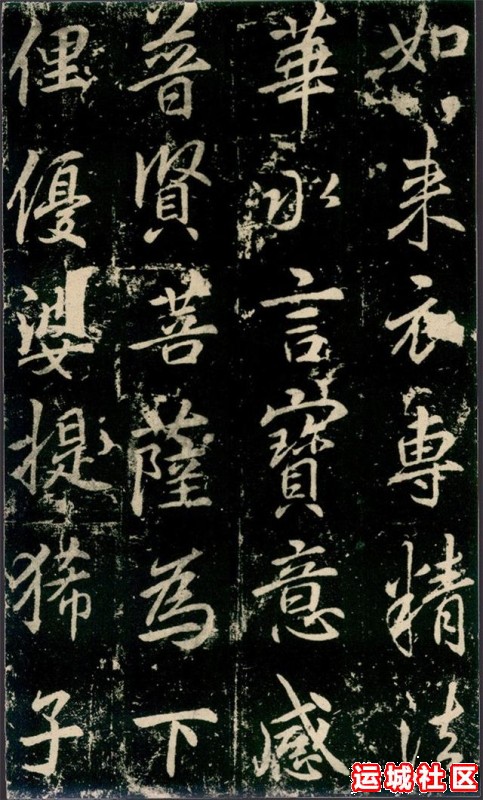 如來衣專精法
華永言寶意感
普賢菩薩為下
俚優婆提狶子
运城社区